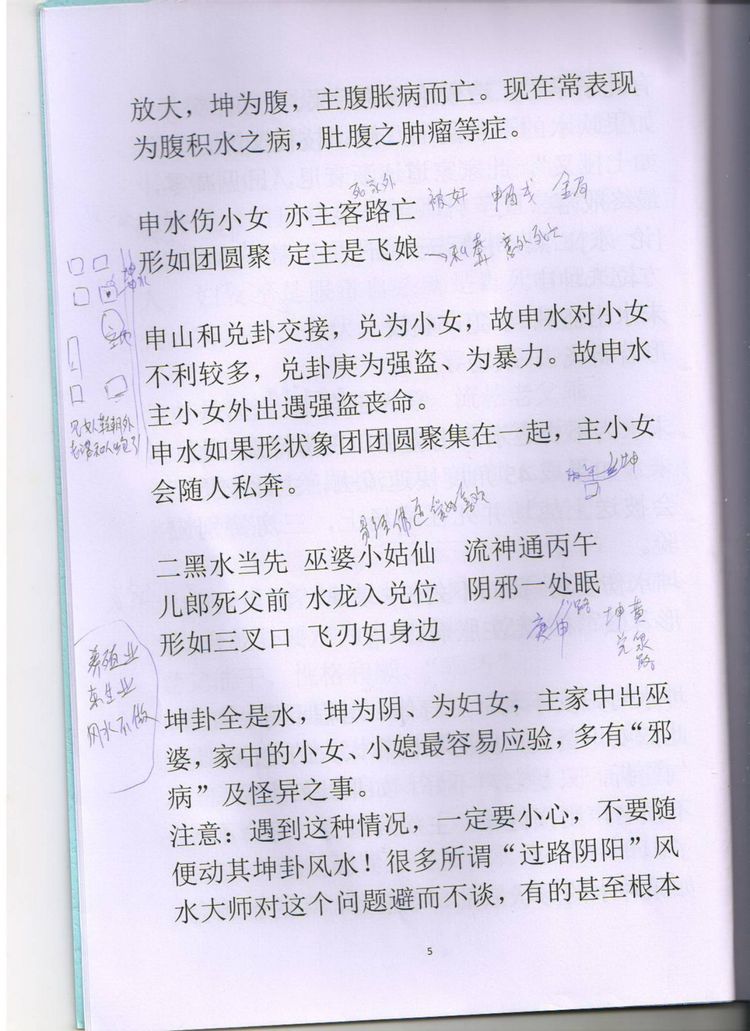 放大，坤为腹，主腹胀病而亡。现在常表现
为腹积水之病，肚腹之肿瘤等症。
死家外 被奸 申酉戌
申水伤小女 亦主客路亡
形如团圆聚 定主是飞娘→私奔 意外死亡
申山和兑卦交接，兑为小女，故申水对小女
不利较多，兑卦庚为强盗、为暴力。故申水
主小女外出遇强盗丧命。
申水如果形状象团团圆聚集在一起，主小女
会随人私奔。
二黑水当先 巫婆小姑仙 流神通丙午
儿郎死父前 水龙入兑位 阴邪一处眠
形如三叉口 飞刃妇身边
庚申 路 坤黄
养殖业
风水不做
坤卦全是水，坤为阴、为妇女，主家中出巫
婆，家中的小女、小媳最容易应验，多有“邪
病”及怪异之事。
注意：遇到这种情况，一定要小心，不要随
便动其坤卦风水！很多所谓“过路阴阳”风
水大师对这个问题避而不谈，有的甚至根本
5